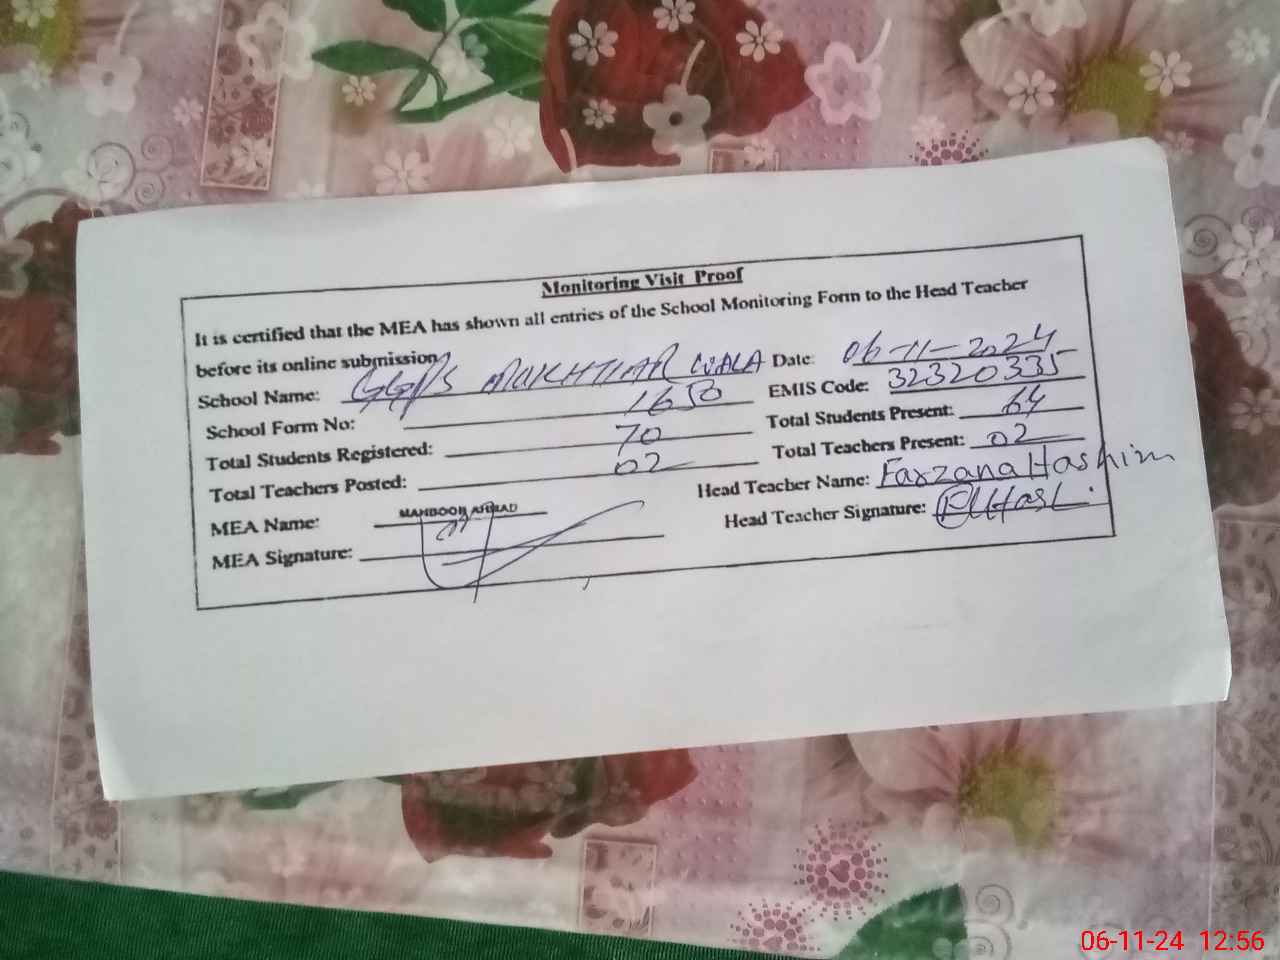 Monitoring Visit Proof
It is certified that the MEA has shown all entries of the School Monitoring Form to the Head Teacher
before its online submission
School Name: GGPS MUKHTIAR WALA Date: 06-11-2024
School Form No: 1650 EMIS Code: 32320335
Total Students Registered: 70 Total Students Present: 64
Total Teachers Posted: 02 Total Teachers Present: 02
MEA Name: MAHBOOB AHMAD Head Teacher Name: Farzana Hashim
MEA Signature: Head Teacher Signature:
06-11-24 12:56